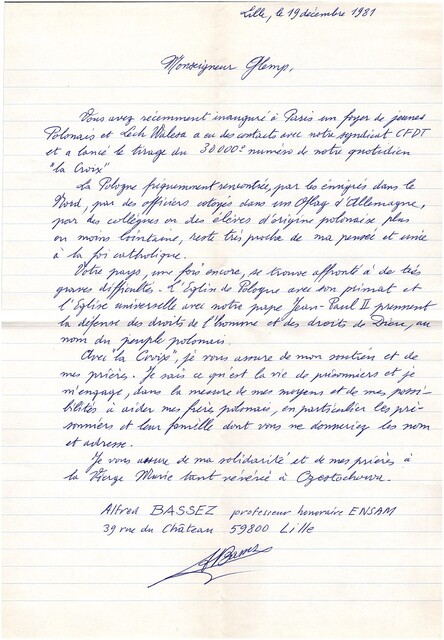 Lille, le 19 décembre 1981
Monseigneur Glemp,
Vous avez récemment inauguré à Paris un foyer de jeunes
Polonais et Lech Walesa a eu des contacts avec notre syndicat CFDT
et a lancé le tirage du 30000e numéro de notre quotidien
"la Croix"
La Pologne fréquemment rencontrée, par les émigrés dans le
Nord, par des officiers cotoyés dans un Oflag d'Allemagne,
par des collègues ou des élèves d'origine polonaise plus
ou moins lointaine, reste très proche de ma pensée et unie
à la foi catholique.
Votre pays, une fois encore, se trouve affronté à de très
graves difficultés. L'Eglise de Pologne avec son primat et
l'Eglise universelle avec notre pape Jean-Paul II prennent
la défense des droits de l'homme et des droits de Dieu, au
nom du peuple polonais.
Avec "la Croix", je vous assure de mon soutien et de
mes prières. Je sais ce qu'est la vie de prisonniers et je
m'engage, dans la mesure de mes moyens et de mes possi-
bilités à aider mes frères polonais, en particulier les pri-
sonniers et leur famille dont vous me donneriez les nom
et adresse.
Je vous assure de ma solidarité et de mes prières à
la Vierge Marie tant vénérée à Czestochowa.
Alfred BASSEZ professeur honoraire ENSAM
39 rue du Château 59800 Lille
ABassez